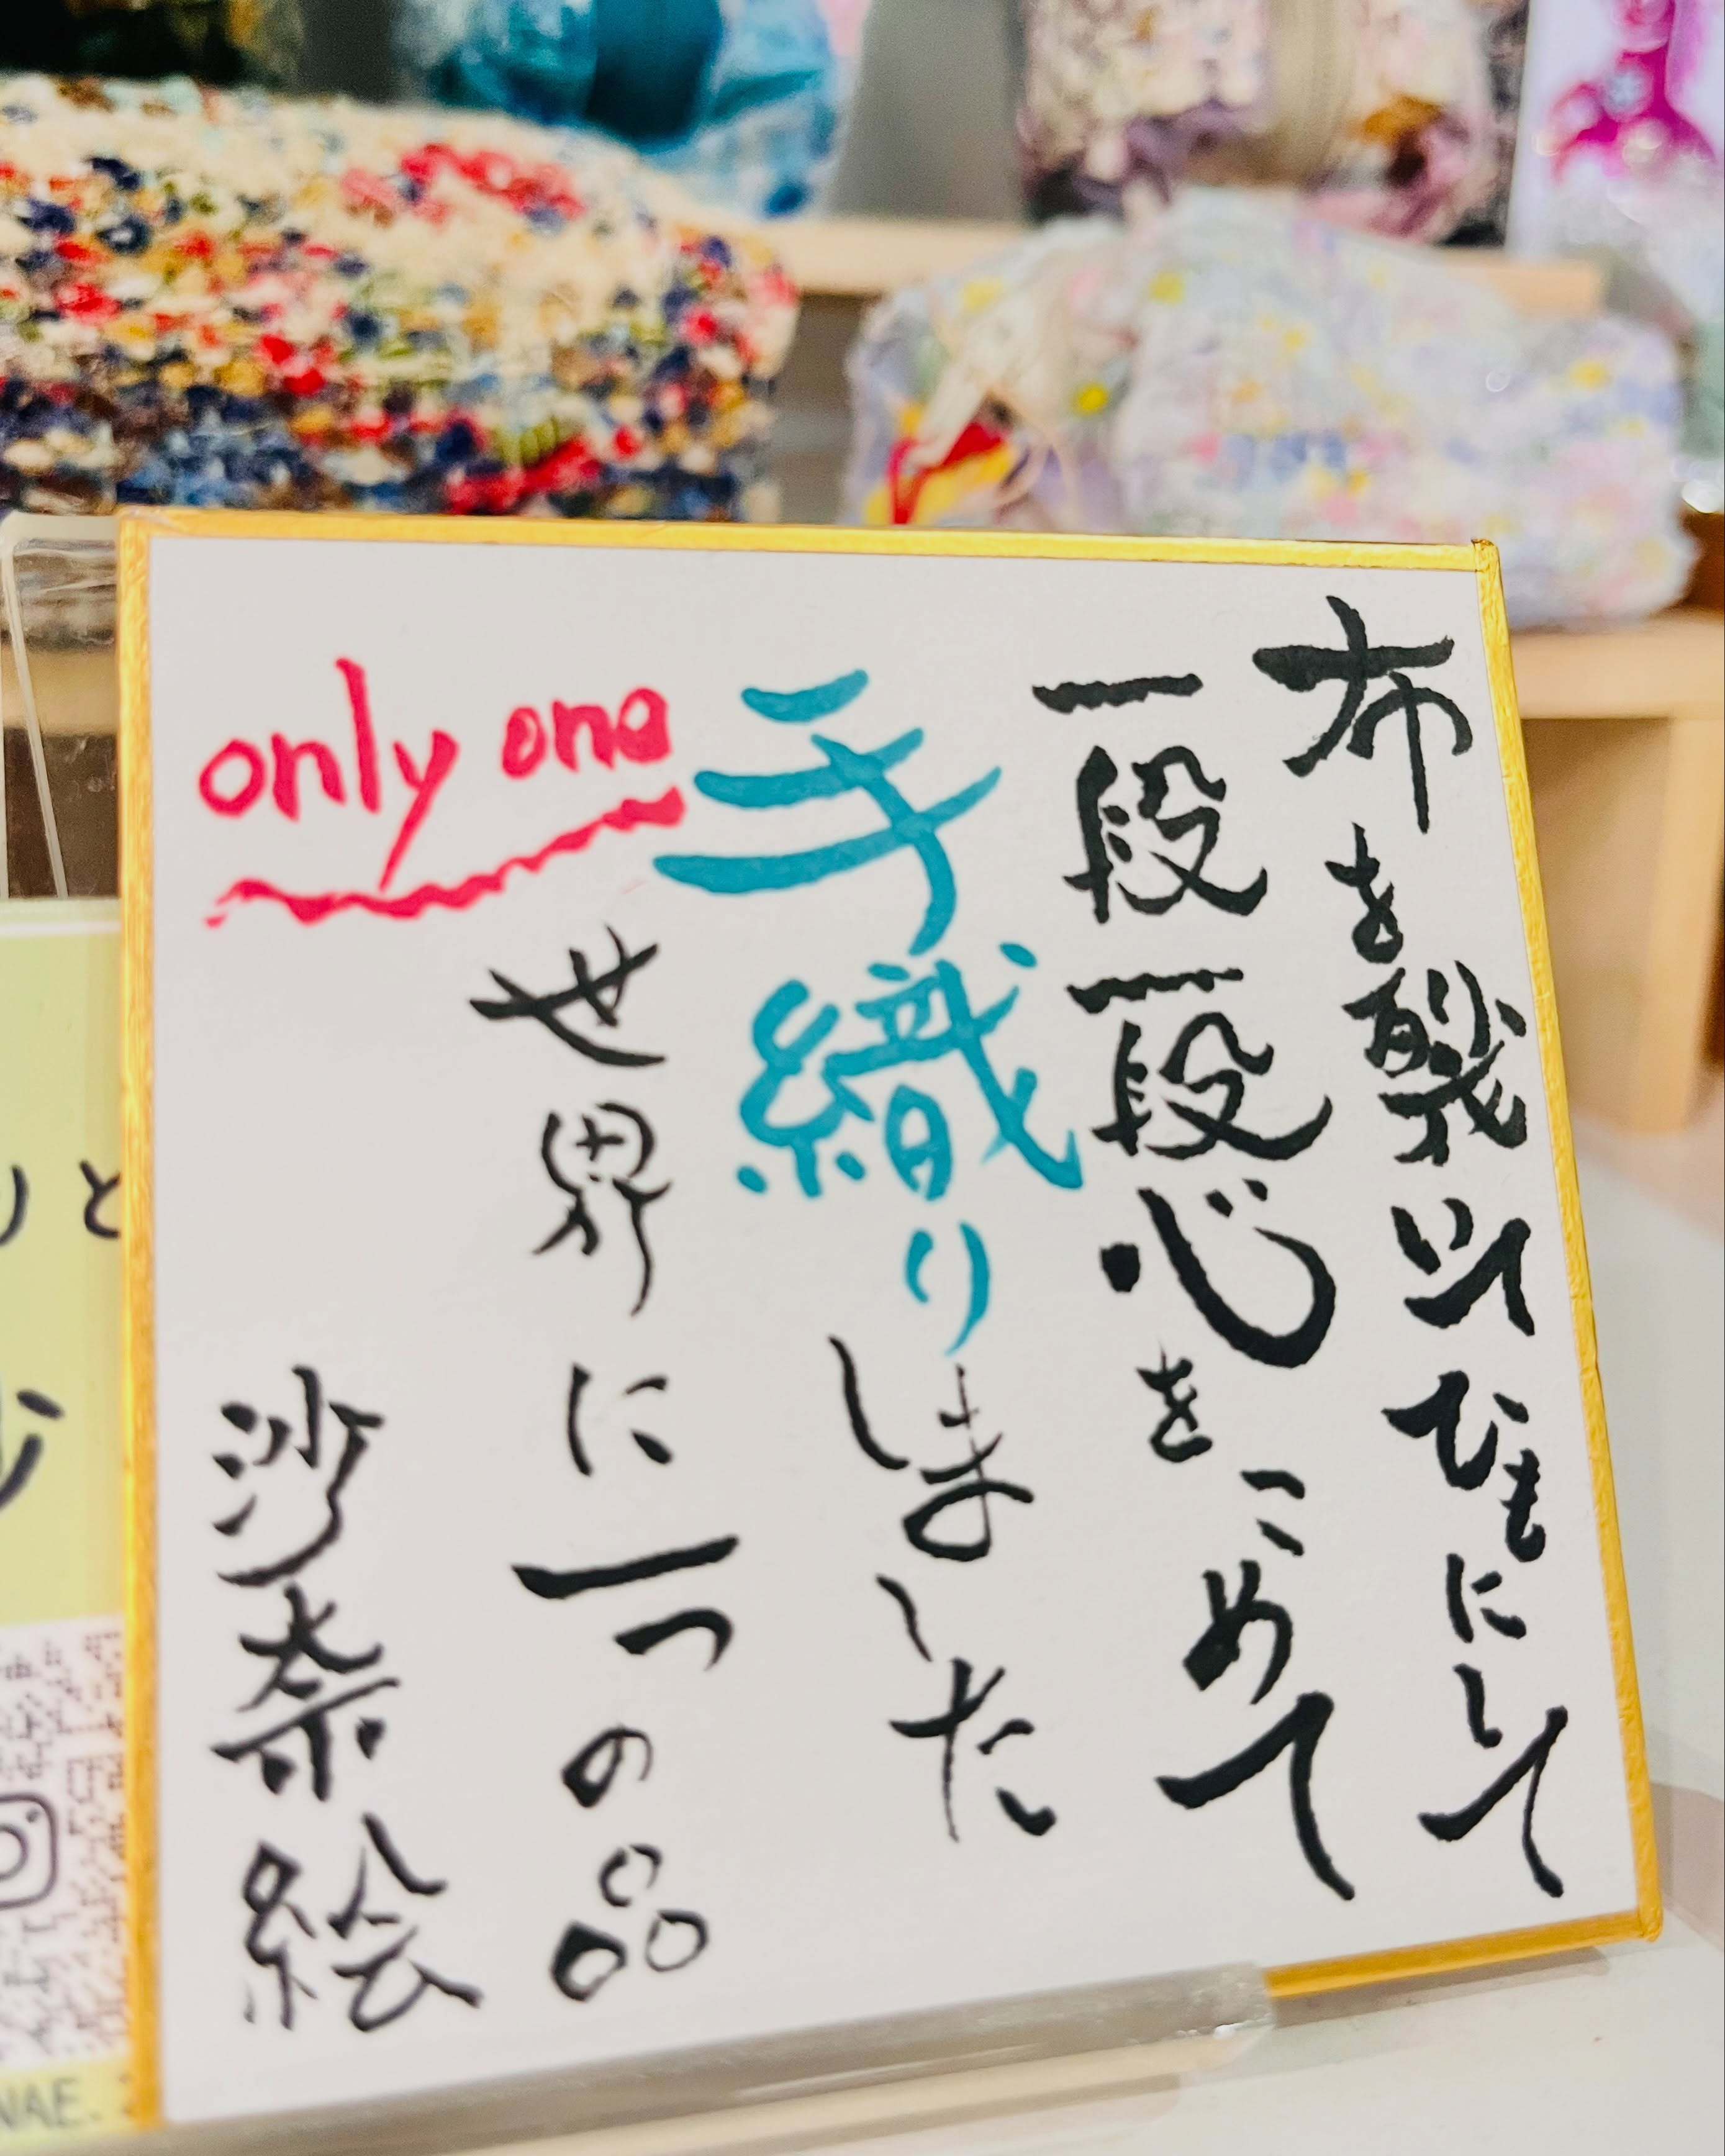 布を裂いてひもにして
一段一段心をこめて
手織りしました
only one
世界に一つの品
沙奈絵
りと
NAE.